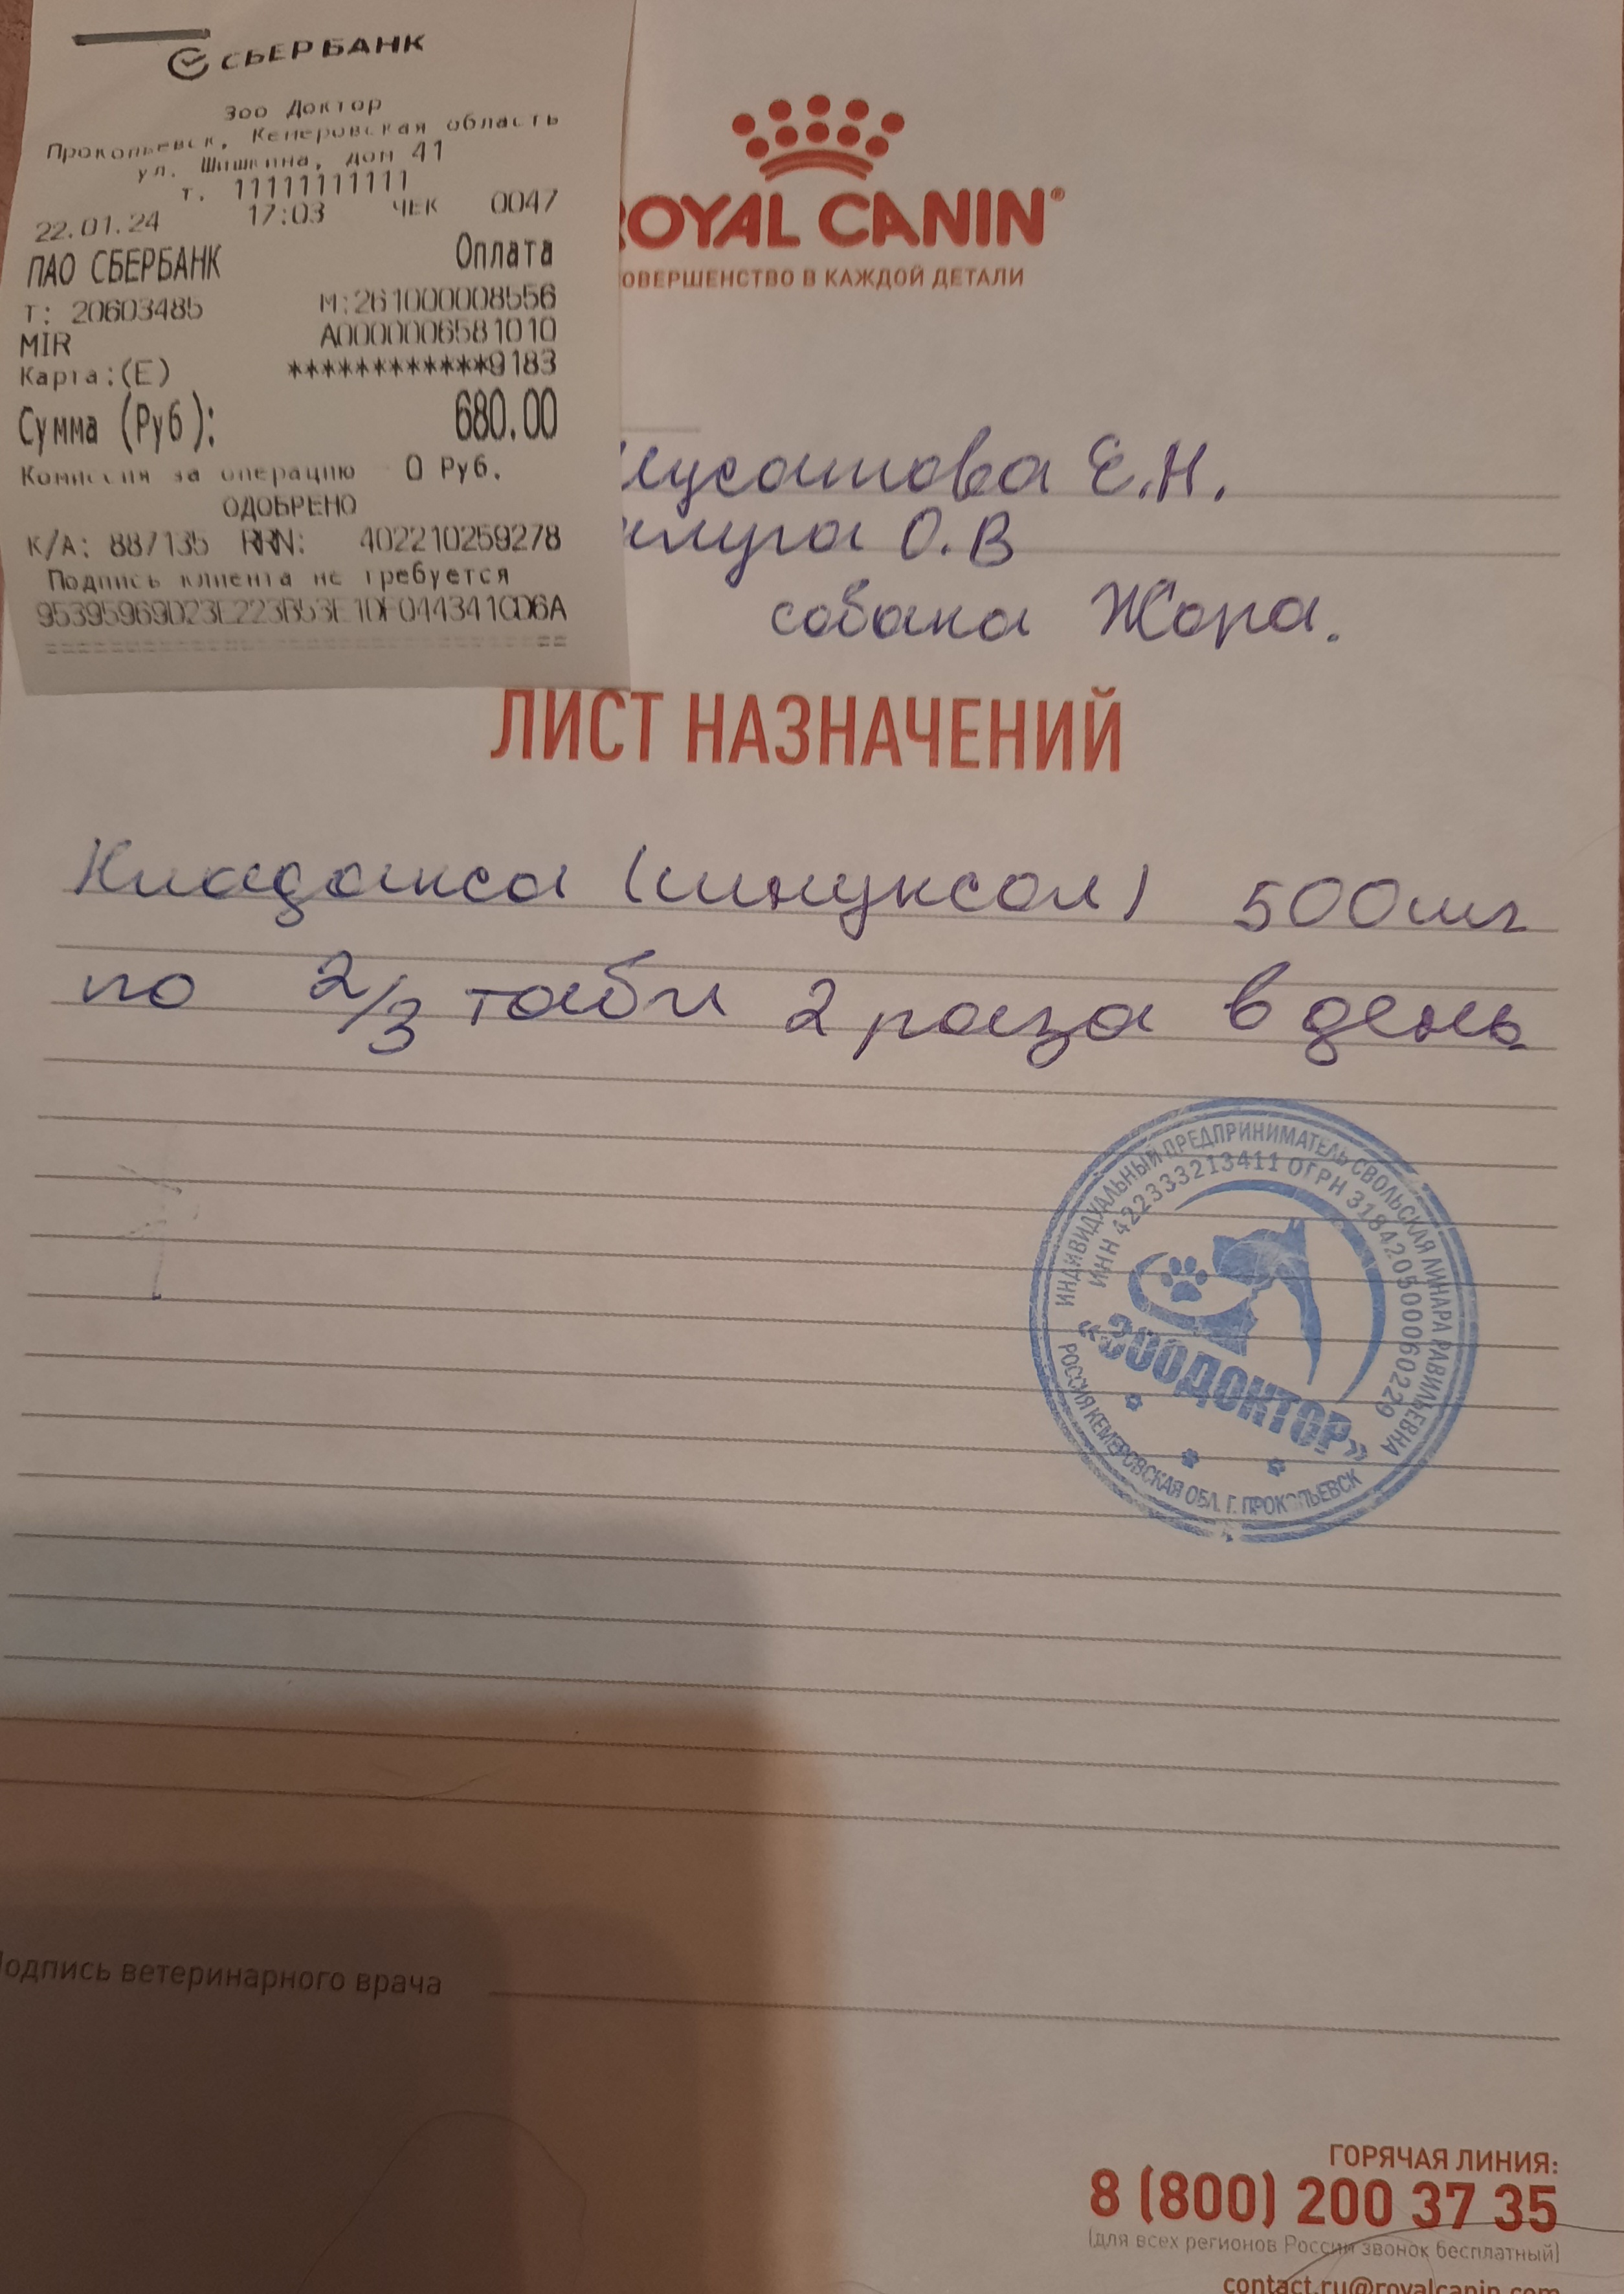 СБЕРБАНК
Зоо Доктор
Прокопьевск, Кемеровская область
ул. Шишкина, дом 41
т. 11111111111
22.01.24 17:03 ЧЕК 0047
ПАО СБЕРБАНК Оплата
Т: 20603485 М:261000008556
MIR A0000006581010
Карта:(E) ************9183
Сумма (Руб): 680.00
Комиссия за операцию 0 Руб.
ОДОБРЕНО
К/А: 887135 RRN: 402210259278
Подпись клиента не требуется
95395969D23E223B53E1DF044341CD6A
==============================
ROYAL CANIN®
ОВЕРШЕНСТВО В КАЖДОЙ ДЕТАЛИ
Мусатова Е.Н.
О.В
собака Жора.
ЛИСТ НАЗНАЧЕНИЙ
Кладакса (синуксол) 500мг
по 2/3 табл 2 раза в день
ИНДИВИДУАЛЬНЫЙ ПРЕДПРИНИМАТЕЛЬ СВОЛЬСКАЯ ЛИНАРА РАВИЛЬЕВНА
ИНН 422333213411 ОГРН 318420500060229
«ЗООДОКТОР»
РОССИЯ КЕМЕРОВСКАЯ ОБЛ. Г. ПРОКОПЬЕВСК
Подпись ветеринарного врача
ГОРЯЧАЯ ЛИНИЯ:
8 (800) 200 37 35
(для всех регионов России звонок бесплатный)
contact.ru@royalcanin.com